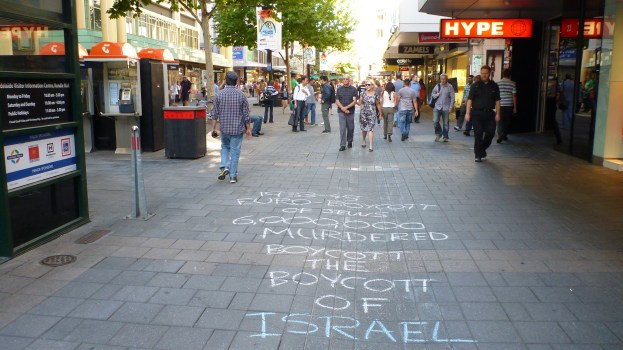 HYPE
ZAMELS
Adelaide Visitor Information Centre, Rundle Mall
1933-45
EURO-BOYCOTT
OF JEWS
6000,000
MURDERED
BOYCOTT
THE
BOYCOTT
OF
ISRAEL